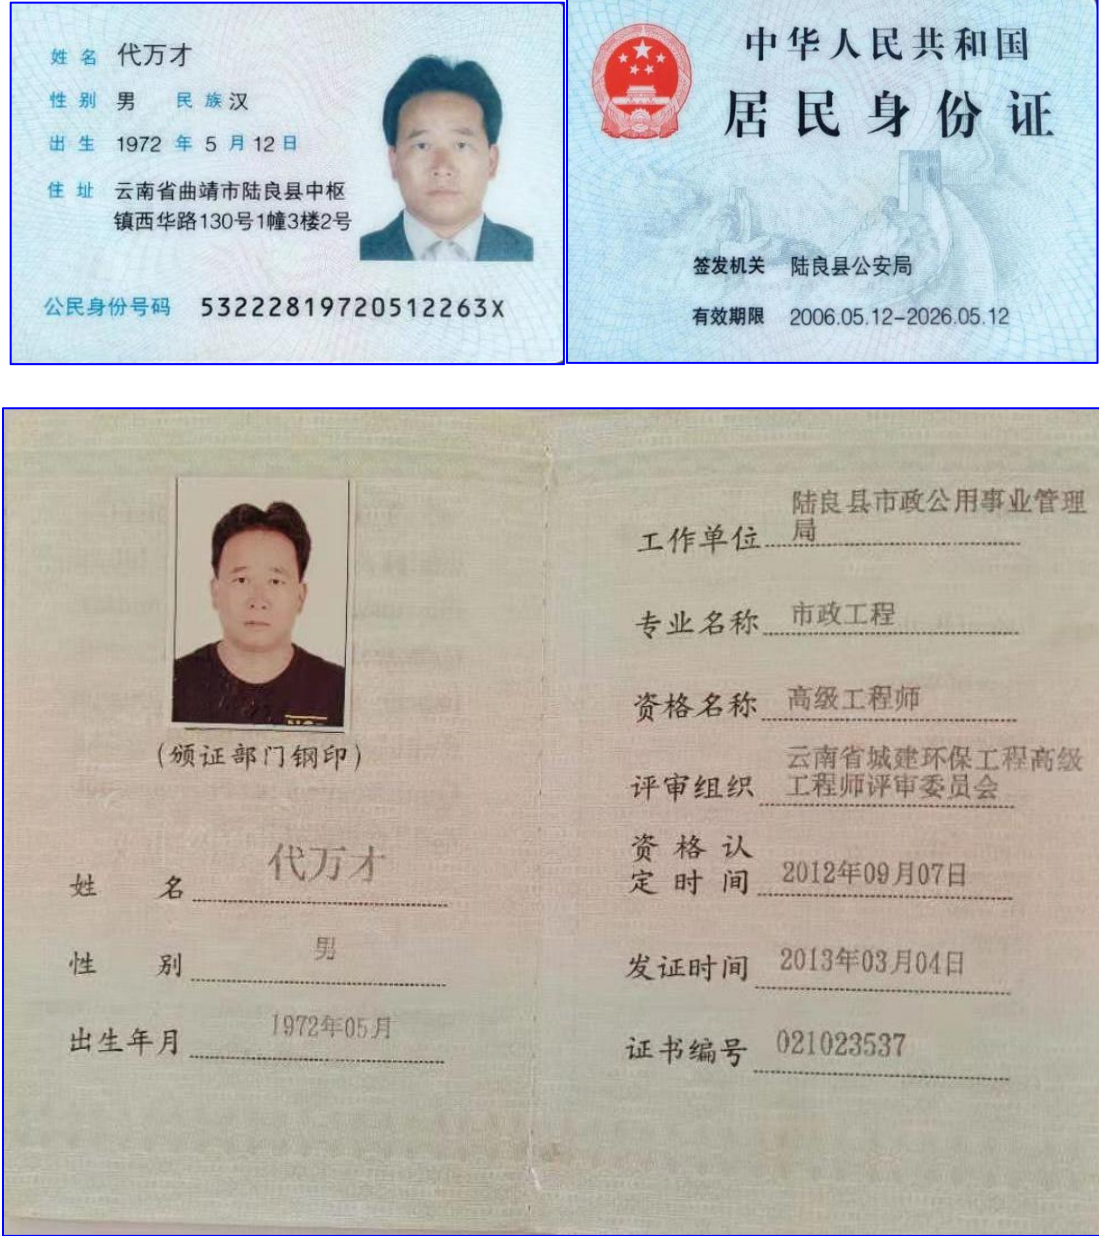 姓名 代万才
性别 男 民族 汉
出生 1972 年 5 月 12 日
住址 云南省曲靖市陆良县中枢
镇西华路130号1幢3楼2号
公民身份号码 53222819720512263X
中华人民共和国
居民身份证
签发机关 陆良县公安局
有效期限 2006.05.12-2026.05.12
(颁证部门钢印)
姓名 代万才
性别 男
出生年月 1972年05月
陆良县市政公用事业管理
工作单位 局
专业名称 市政工程
资格名称 高级工程师
云南省城建环保工程高级
评审组织 工程师评审委员会
资格认
定时间 2012年09月07日
发证时间 2013年03月04日
证书编号 021023537